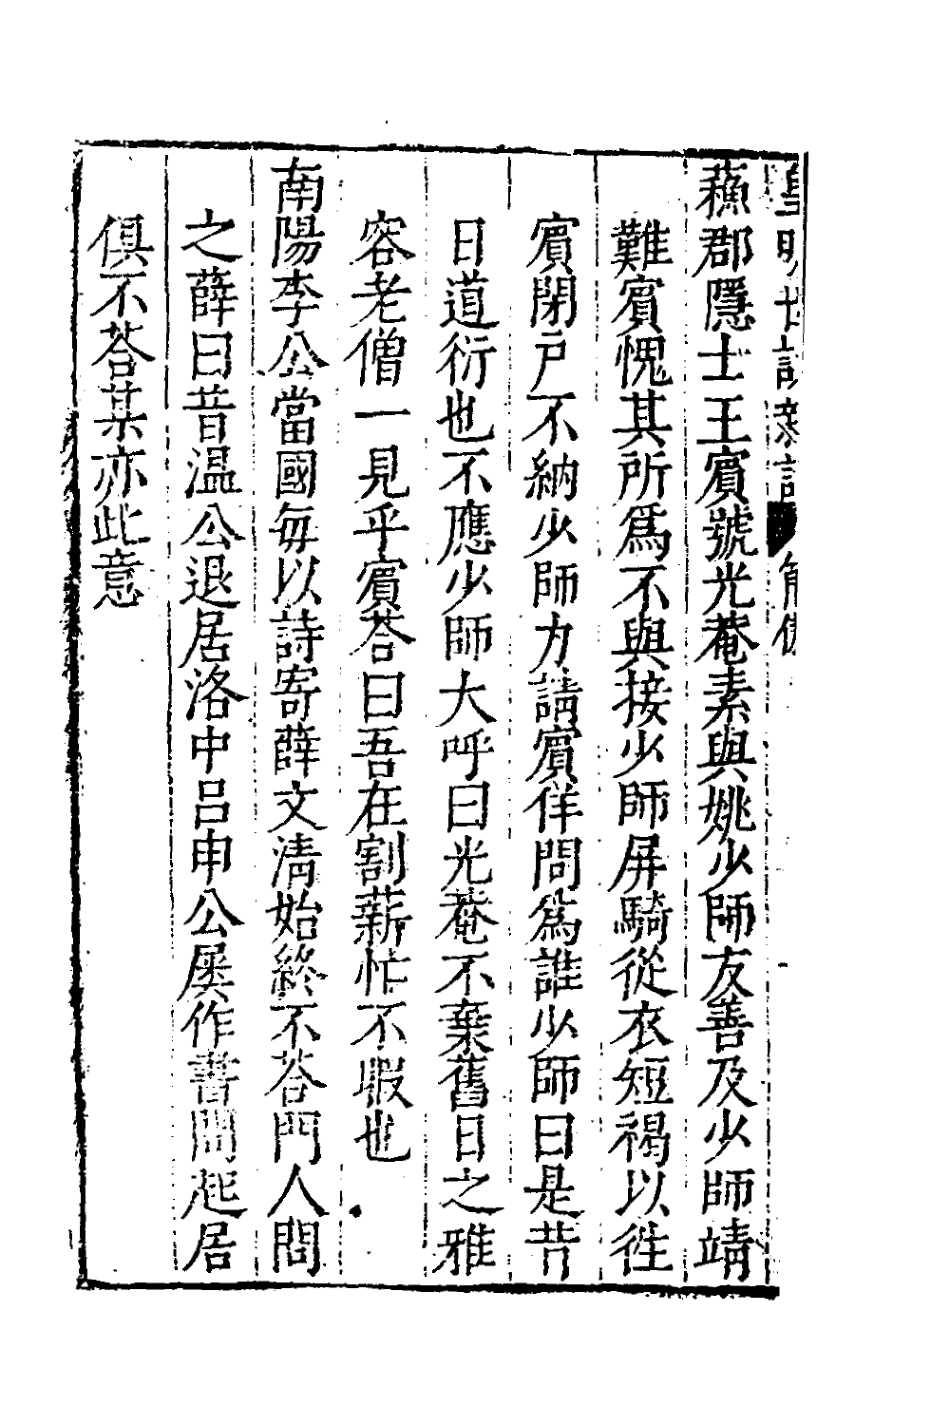 蘓郡隱士王賓號光菴素與姚少師友善及少師靖
難賓愧其所爲不與接少師屏騎從衣短褐以徃
賓閉戸不納少師力請賓佯問爲誰少師曰是昔
日道衍也不應少師大呼曰光菴不棄舊日之雅
容老僧一見乎賓荅曰吾在割薪忙不暇也
南陽李公當國每以詩寄薛文清始終不荅門人問
之薛曰昔温公退居洛中呂申公屢作書問起居
俱不荅某亦此意